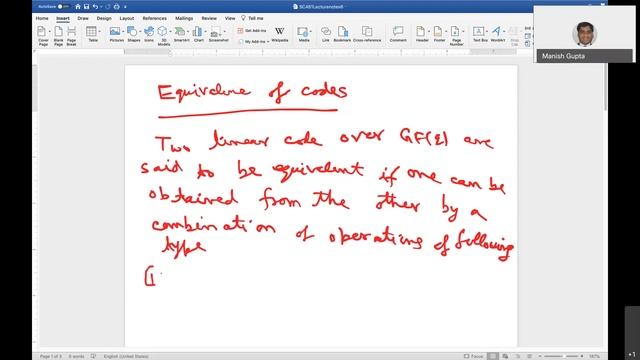 AutoSave
OFF
SCAB1Lecturenotes6
Home Insert Draw Design Layout References Mailings Review View Tell me
Share Comments
Cover Page
Blank Page
Page Break
Table
Pictures
Shapes
Icons
3D Models
SmartArt
Chart
Screenshot
Get Add-ins
My Add-ins
Wikipedia
Media
Link
Bookmark
Cross-reference
Comment
Header
Footer
Page Number
Text Box
WordArt
Drop Cap
Equation
Manish Gupta
Equivalence of codes
Two linear code over GF(q) are
said to be equivalent if one can be
obtained from the other by a
combination of operations of following
type
(i
Page 1 of 3
English (United States)
Focus
187%
+1